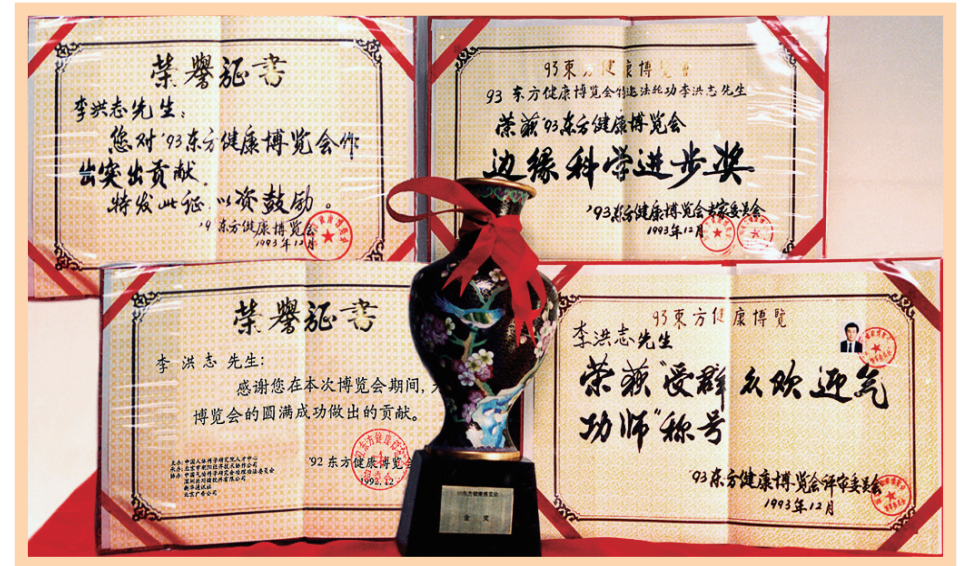 荣誉证书
李洪志先生:
您对'93东方健康博览会作
出突出贡献.
特发此证,以资鼓励。
'9 东方健康博览会
1993年12月
93東方健康博览會
93 东方健康博览会特邀法轮功李洪志先生
荣获'93东方健康博览会
边缘科学进步奖
'93东方健康博览会专家委员会
1993年12月
荣誉证书
李 洪 志 先生:
感谢您在本次博览会期间,
博览会的圆满成功做出的贡献。
'92 东方健康博览会
1992.12
93東方健康博覽
李洪志先生
荣获"受群众欢迎气
功师"称号
'93东方健康博览会评审委员会
1993年12月
93东方健康博览会
金奖